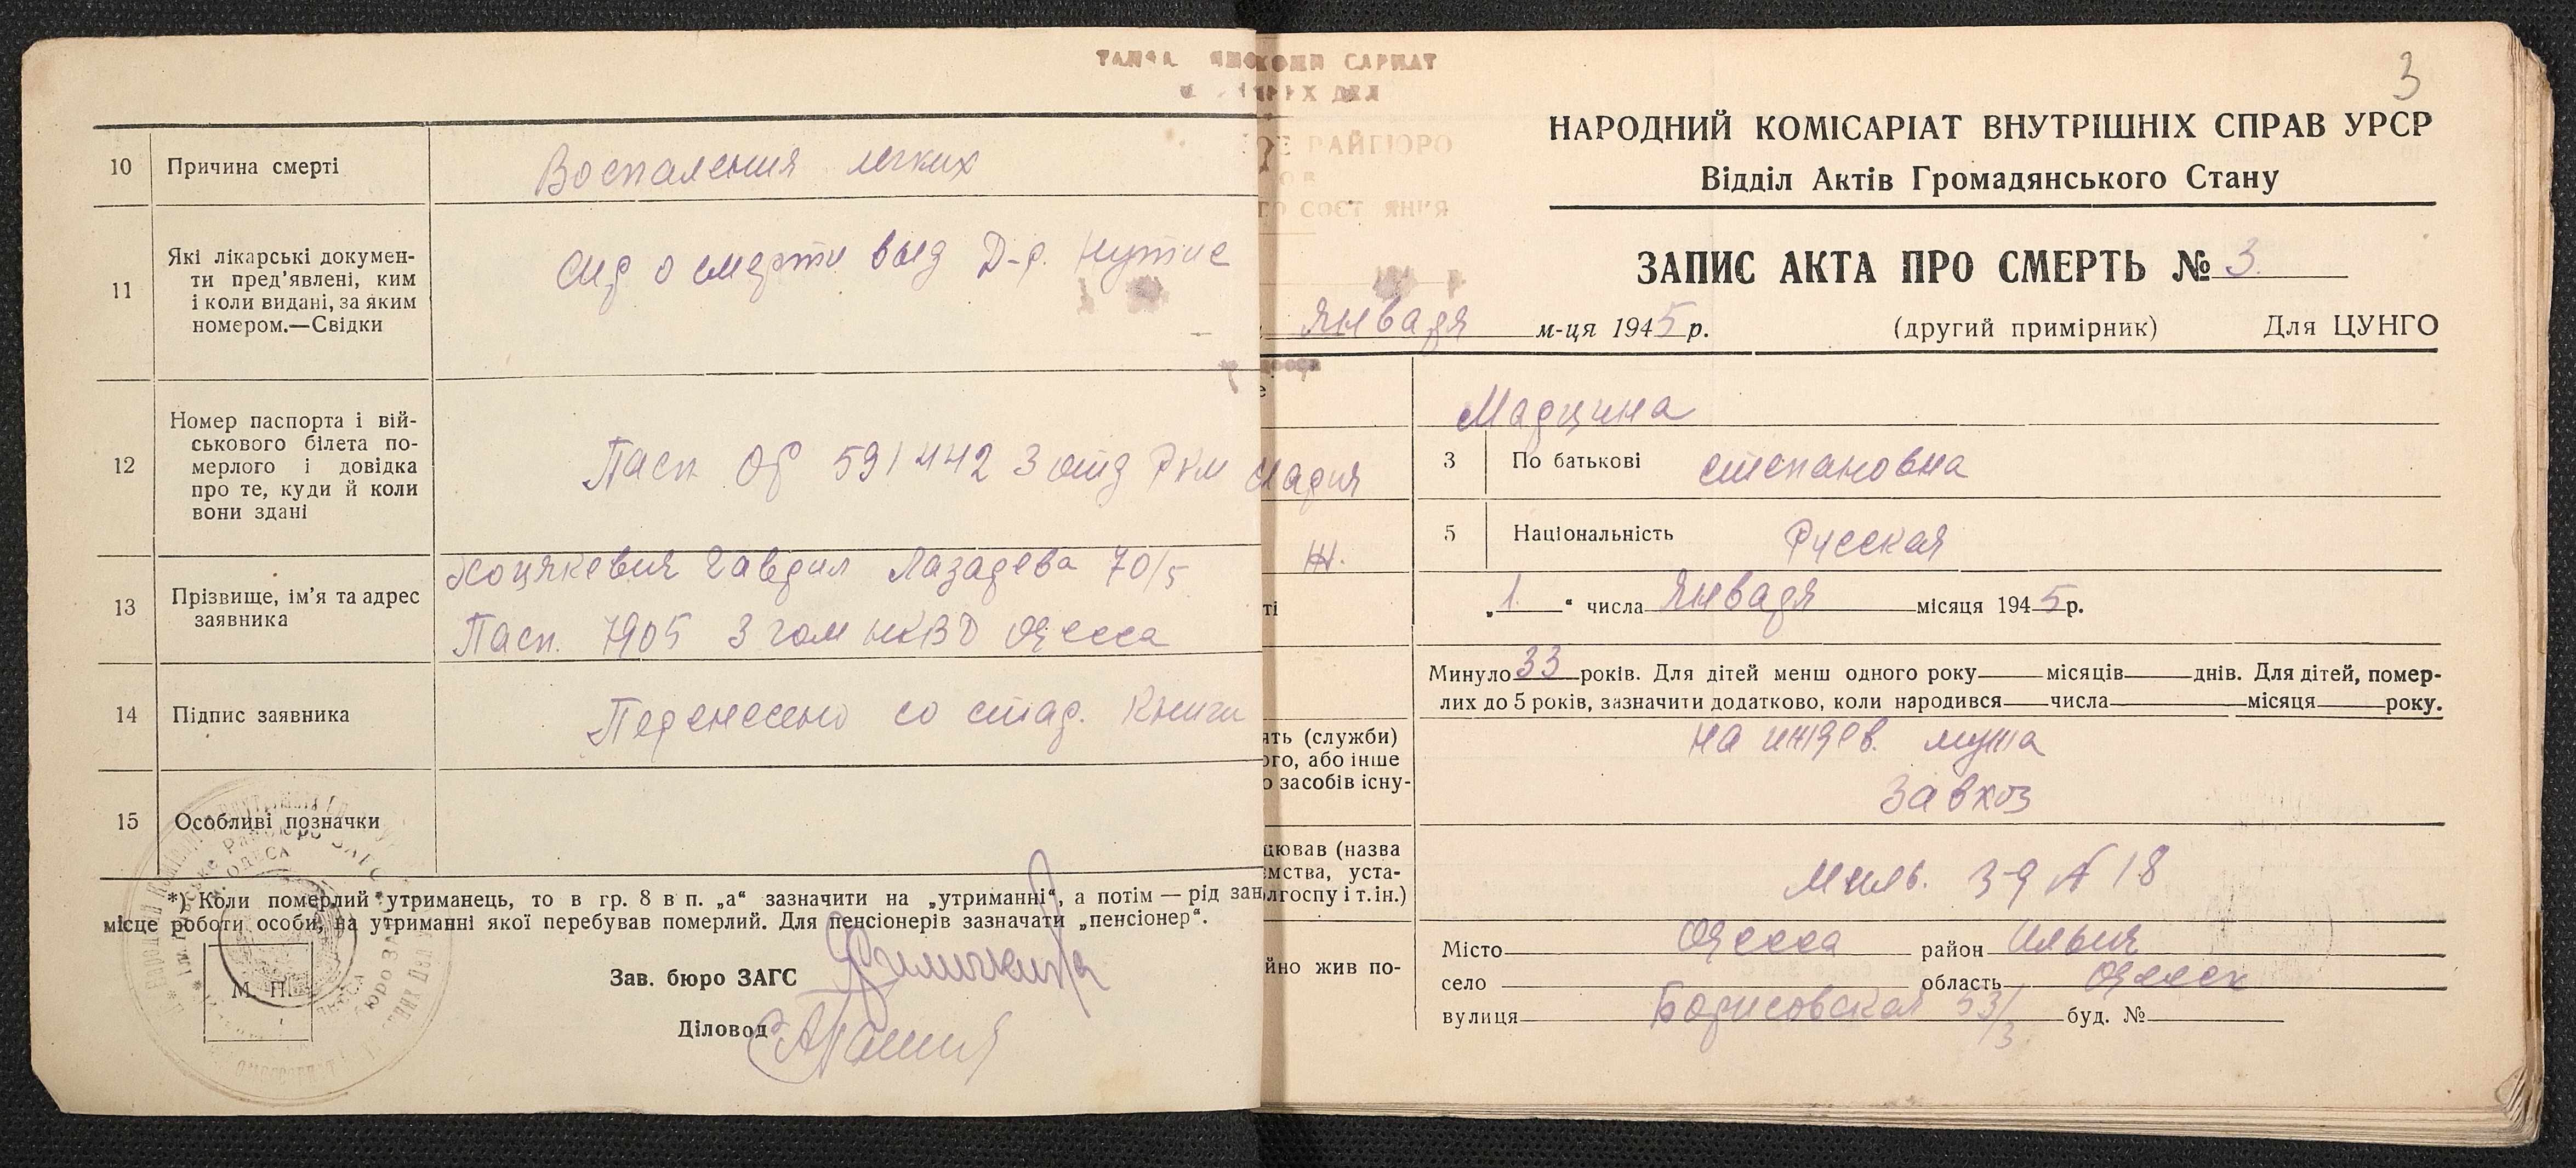 10 Причина смерті Воспаления легких
11 Які лікарські докумен-
ти пред’явлені, ким
і коли видані, за яким
номером.—Свідки
о смерти выд Д-р.
12 Номер паспорта і вій-
ськового білета по-
мерлого і довідка
про те, куди й коли
вони здані
Пасп. 591442 3 отд РКМ
13 Прізвище, ім’я та адрес
заявника
70/5
Пасп. 7905 3 гом НКВД Одесса
14 Підпис заявника Перенесено со стар. Книги
15 Особливі позначки
*) Коли померлий утриманець, то в гр. 8 в п. „а“ зазначити на „утриманні“, а потім — рід зан
місце роботи особи, на утриманні якої перебував померлий. Для пенсіонерів зазначати „пенсіонер“.
М. П.
Зав. бюро ЗАГС
Діловод
3
НАРОДНИЙ КОМІСАРІАТ ВНУТРІШНІХ СПРАВ УРСР
Відділ Актів Громадянського Стану
РАЙБЮРО
ЗАПИС АКТА ПРО СМЕРТЬ № 3.
Января м-ця 1945 р. (другий примірник) Для ЦУНГО
Марцина
3 По батькові Степановна
Мария
5 Національність Русская
Ж.
„1“ числа Января місяця 1945 р.
ті
Минуло 33 років. Для дітей менш одного року місяців днів. Для дітей, помер-
лих до 5 років, зазначити додатково, коли народився числа місяця року.
ять (служби)
ого, або інше
о засобів існу-
на иждев. мужа
Завхоз
цював (назва
ємства, уста-
лгоспу і т.ін.)
Миль. 3-д № 18
йно жив по-
Місто Одесса район Ильич
село область Одесск
вулиця Борисовская 53/3 буд. №